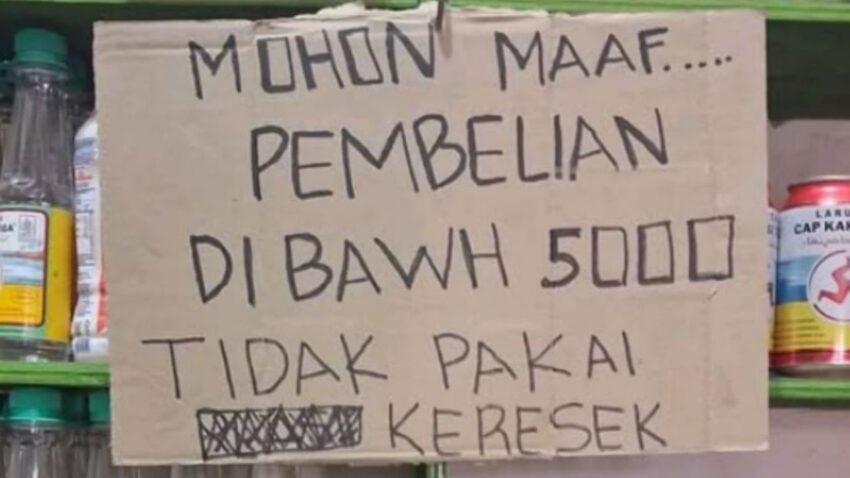 MOHON MAAF.....
PEMBELIAN
DI BAWH 5000
TIDAK PAKAI
KERESEK
LARU
CAP KAK